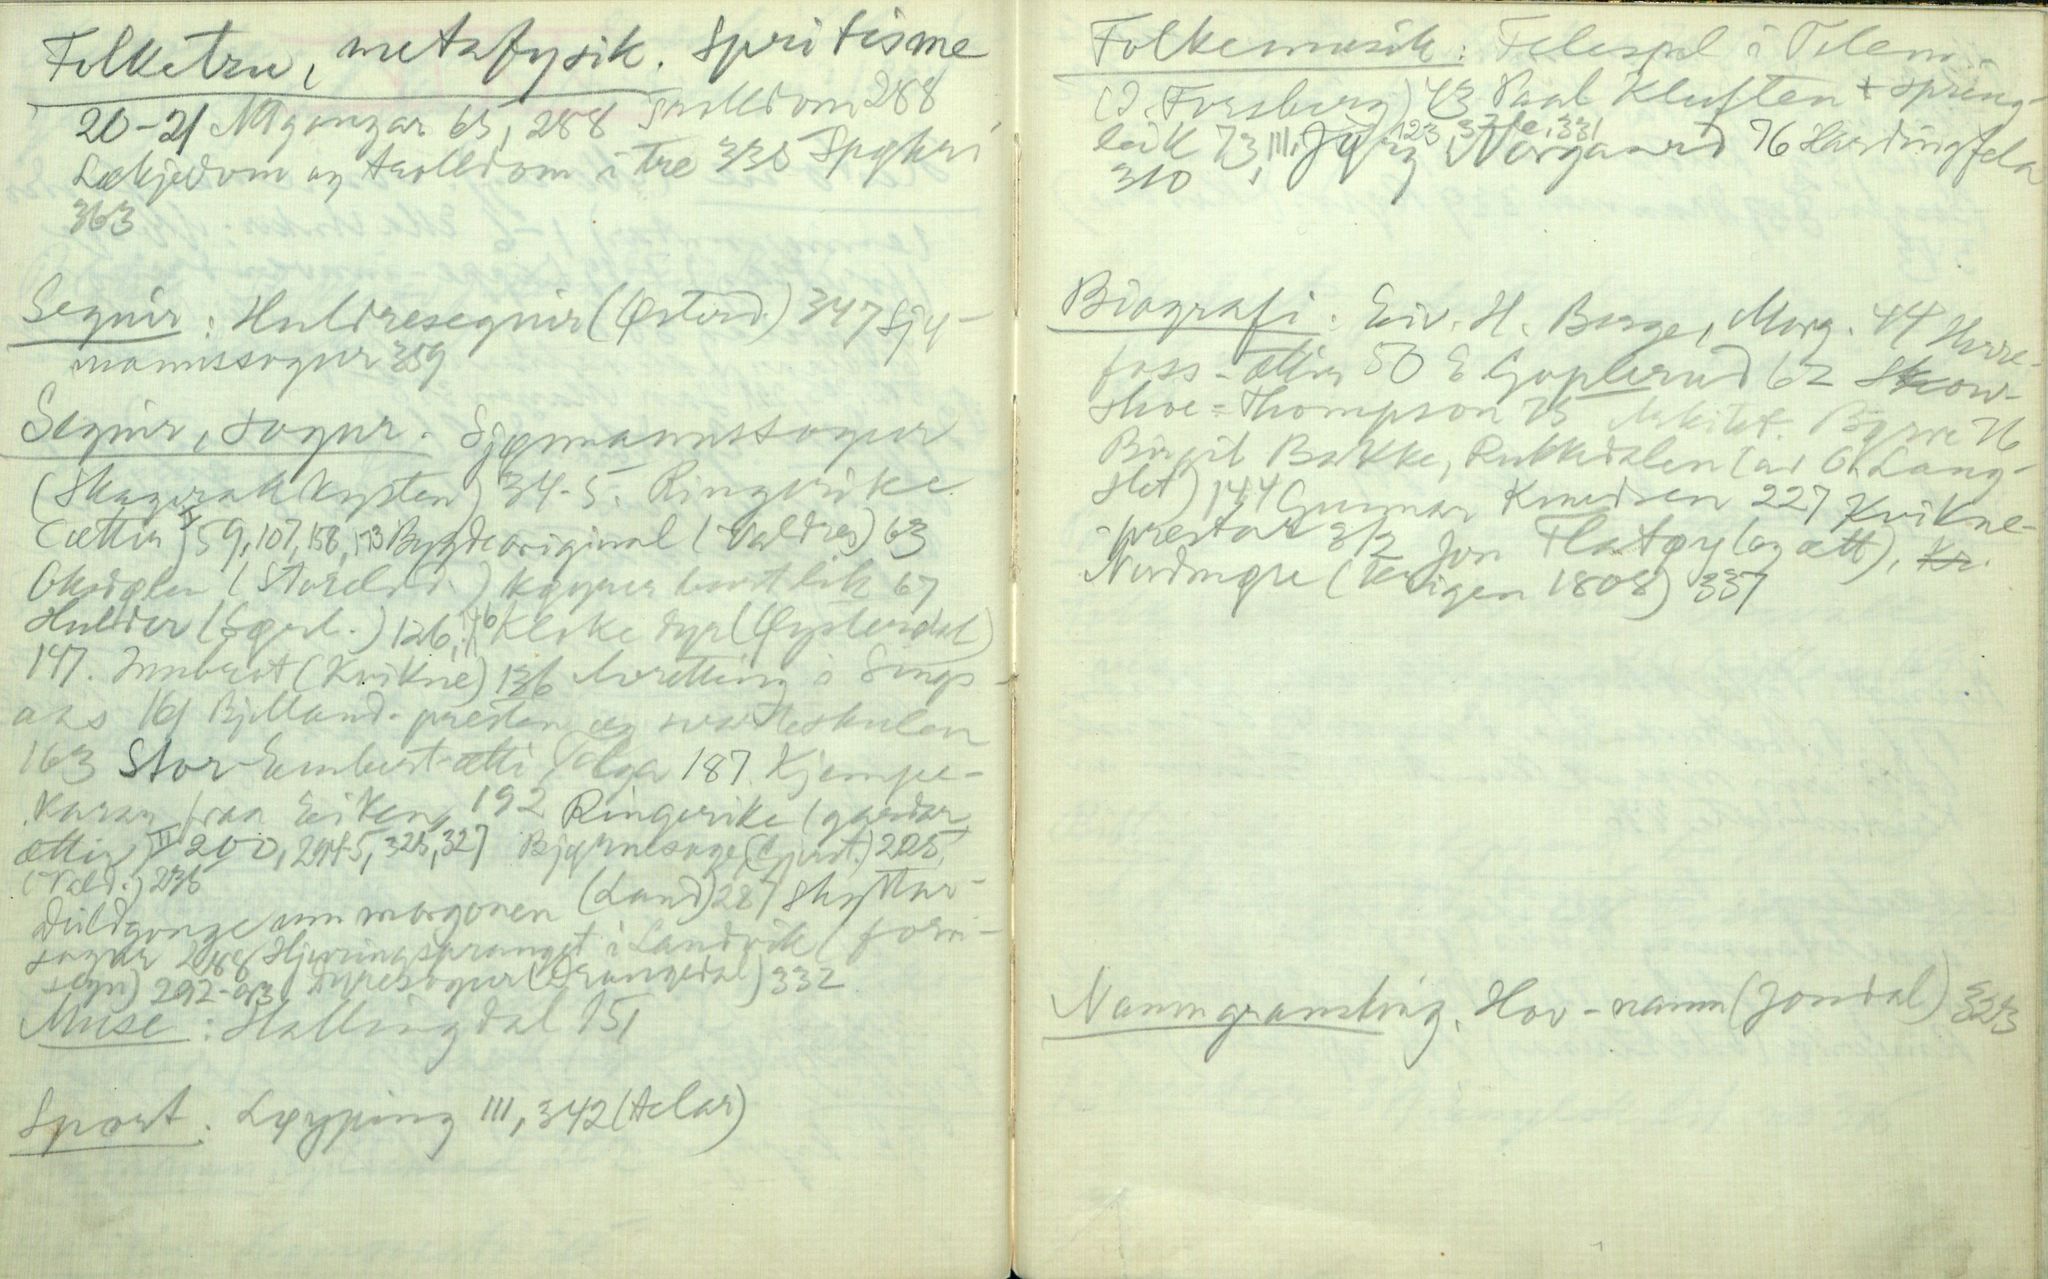 Folketru, metafysik. Spritisme
20-21 Nigongar 65, 288 Trolldom 288
Lækjedom og trolldom i tre 335 Spykri
363
Segnir: Huldresegnir (Østerd.) 347 Sjø-
mannssogur 359
Segnir, sogur. Sjømannssogur
(Skagerakkysten) 34-5. Ringerike
(ættir) I 59, 107, 158, 173 Bygdeoriginal (Valdres) 63
(Storelvd.) køyrer bort lik 67
Hulder 126, Kloke dyr (Øysterdal)
147. Innbrot (Kvikne) 136 Avretting i Sings-
aas 161 Bjelland-presten og svarteskulen
163 Stor-Embert-ætti Tolga 187. Kjempe-
karar fraa Eiken 192 Ringerike (gardar,
ættir) II 200, 325, 327 Bjørnesoge 225,
(Vald.) 236
um morgonen (Land) 287 Skyttar-
sogur 288 i Landvik (forn-
segn) 292-93, Dyresogur (Drangedal) 332
Muse: Hallingdal 151
Sport. Løyping III, 342 (Aelar)
Folkemusik: Felespel i Telem.
(O. Forsberg) 43 Paal Kluften + spring-
leik 73, III. 123, 331 Nørgaard 76 Hardingfela
310
Biografi: Eiv. H. Berge, Morg. 44 Horre-
foss-ættir 50 E Goplerud 62 Snow-
shoe-Thompson 75 Arkitekt. Bjerre 76
Birgit Bakke, Rukkedalen (av O. Lang-
slet) 144 Gunnar Knudsen 227 Kvikne-
prestar 312 Jon Flatøy (og ætt), Kr.
Nordmøre (krigen 1808) 337
Namngransking. Hov-namn (Jondal) 323